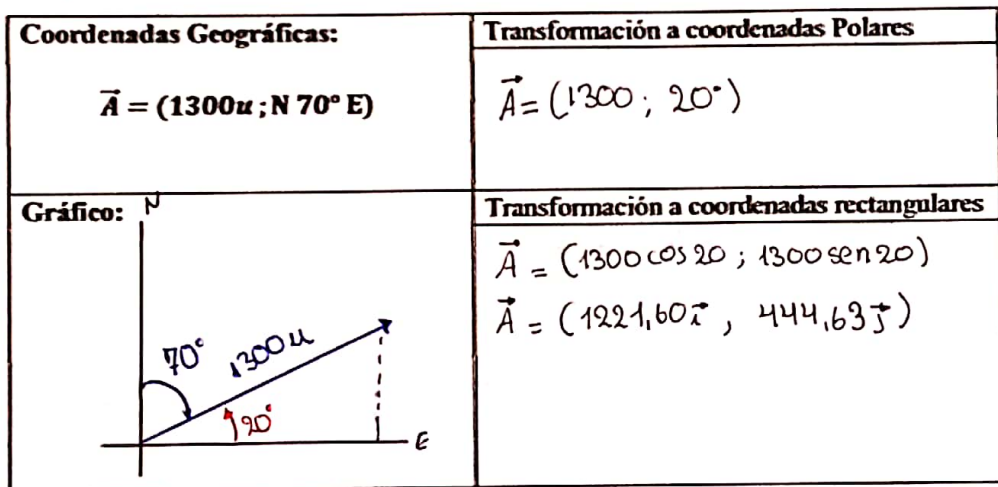 Coordenadas Geográficas:
A⃗ = (1300u ; N 70° E)
Transformación a coordenadas Polares
A⃗ = (1300 ; 20°)
Gráfico:
N
70°
1300 u
20°
E
Transformación a coordenadas rectangulares
A⃗ = (1300 cos 20 ; 1300 sen 20)
A⃗ = (1221,60 i⃗ , 444,63 j⃗)